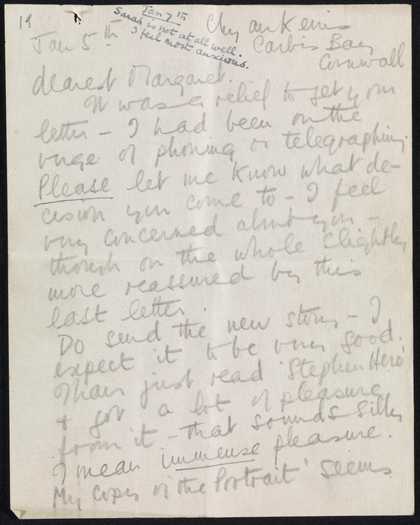 19
Jan 7th
Sarah is not at all well.
I feel most anxious.
Chy an Kerris
Carbis Bay
Cornwall
Jan 5th
dearest Margaret.
It was a relief to get your
letter – I had been on the
verge of phoning or telegraphing.
Please let me know what de-
cision you come to – I feel
very concerned about you –
though on the whole slightly
more reassured by this
last letter.
Do send the new story – I
expect it to be very good.
I have just read 'Stephen Hero'
& got a lot of pleasure
from it – that sounds silly
I mean immense pleasure.
My copy of 'the Portrait' seems